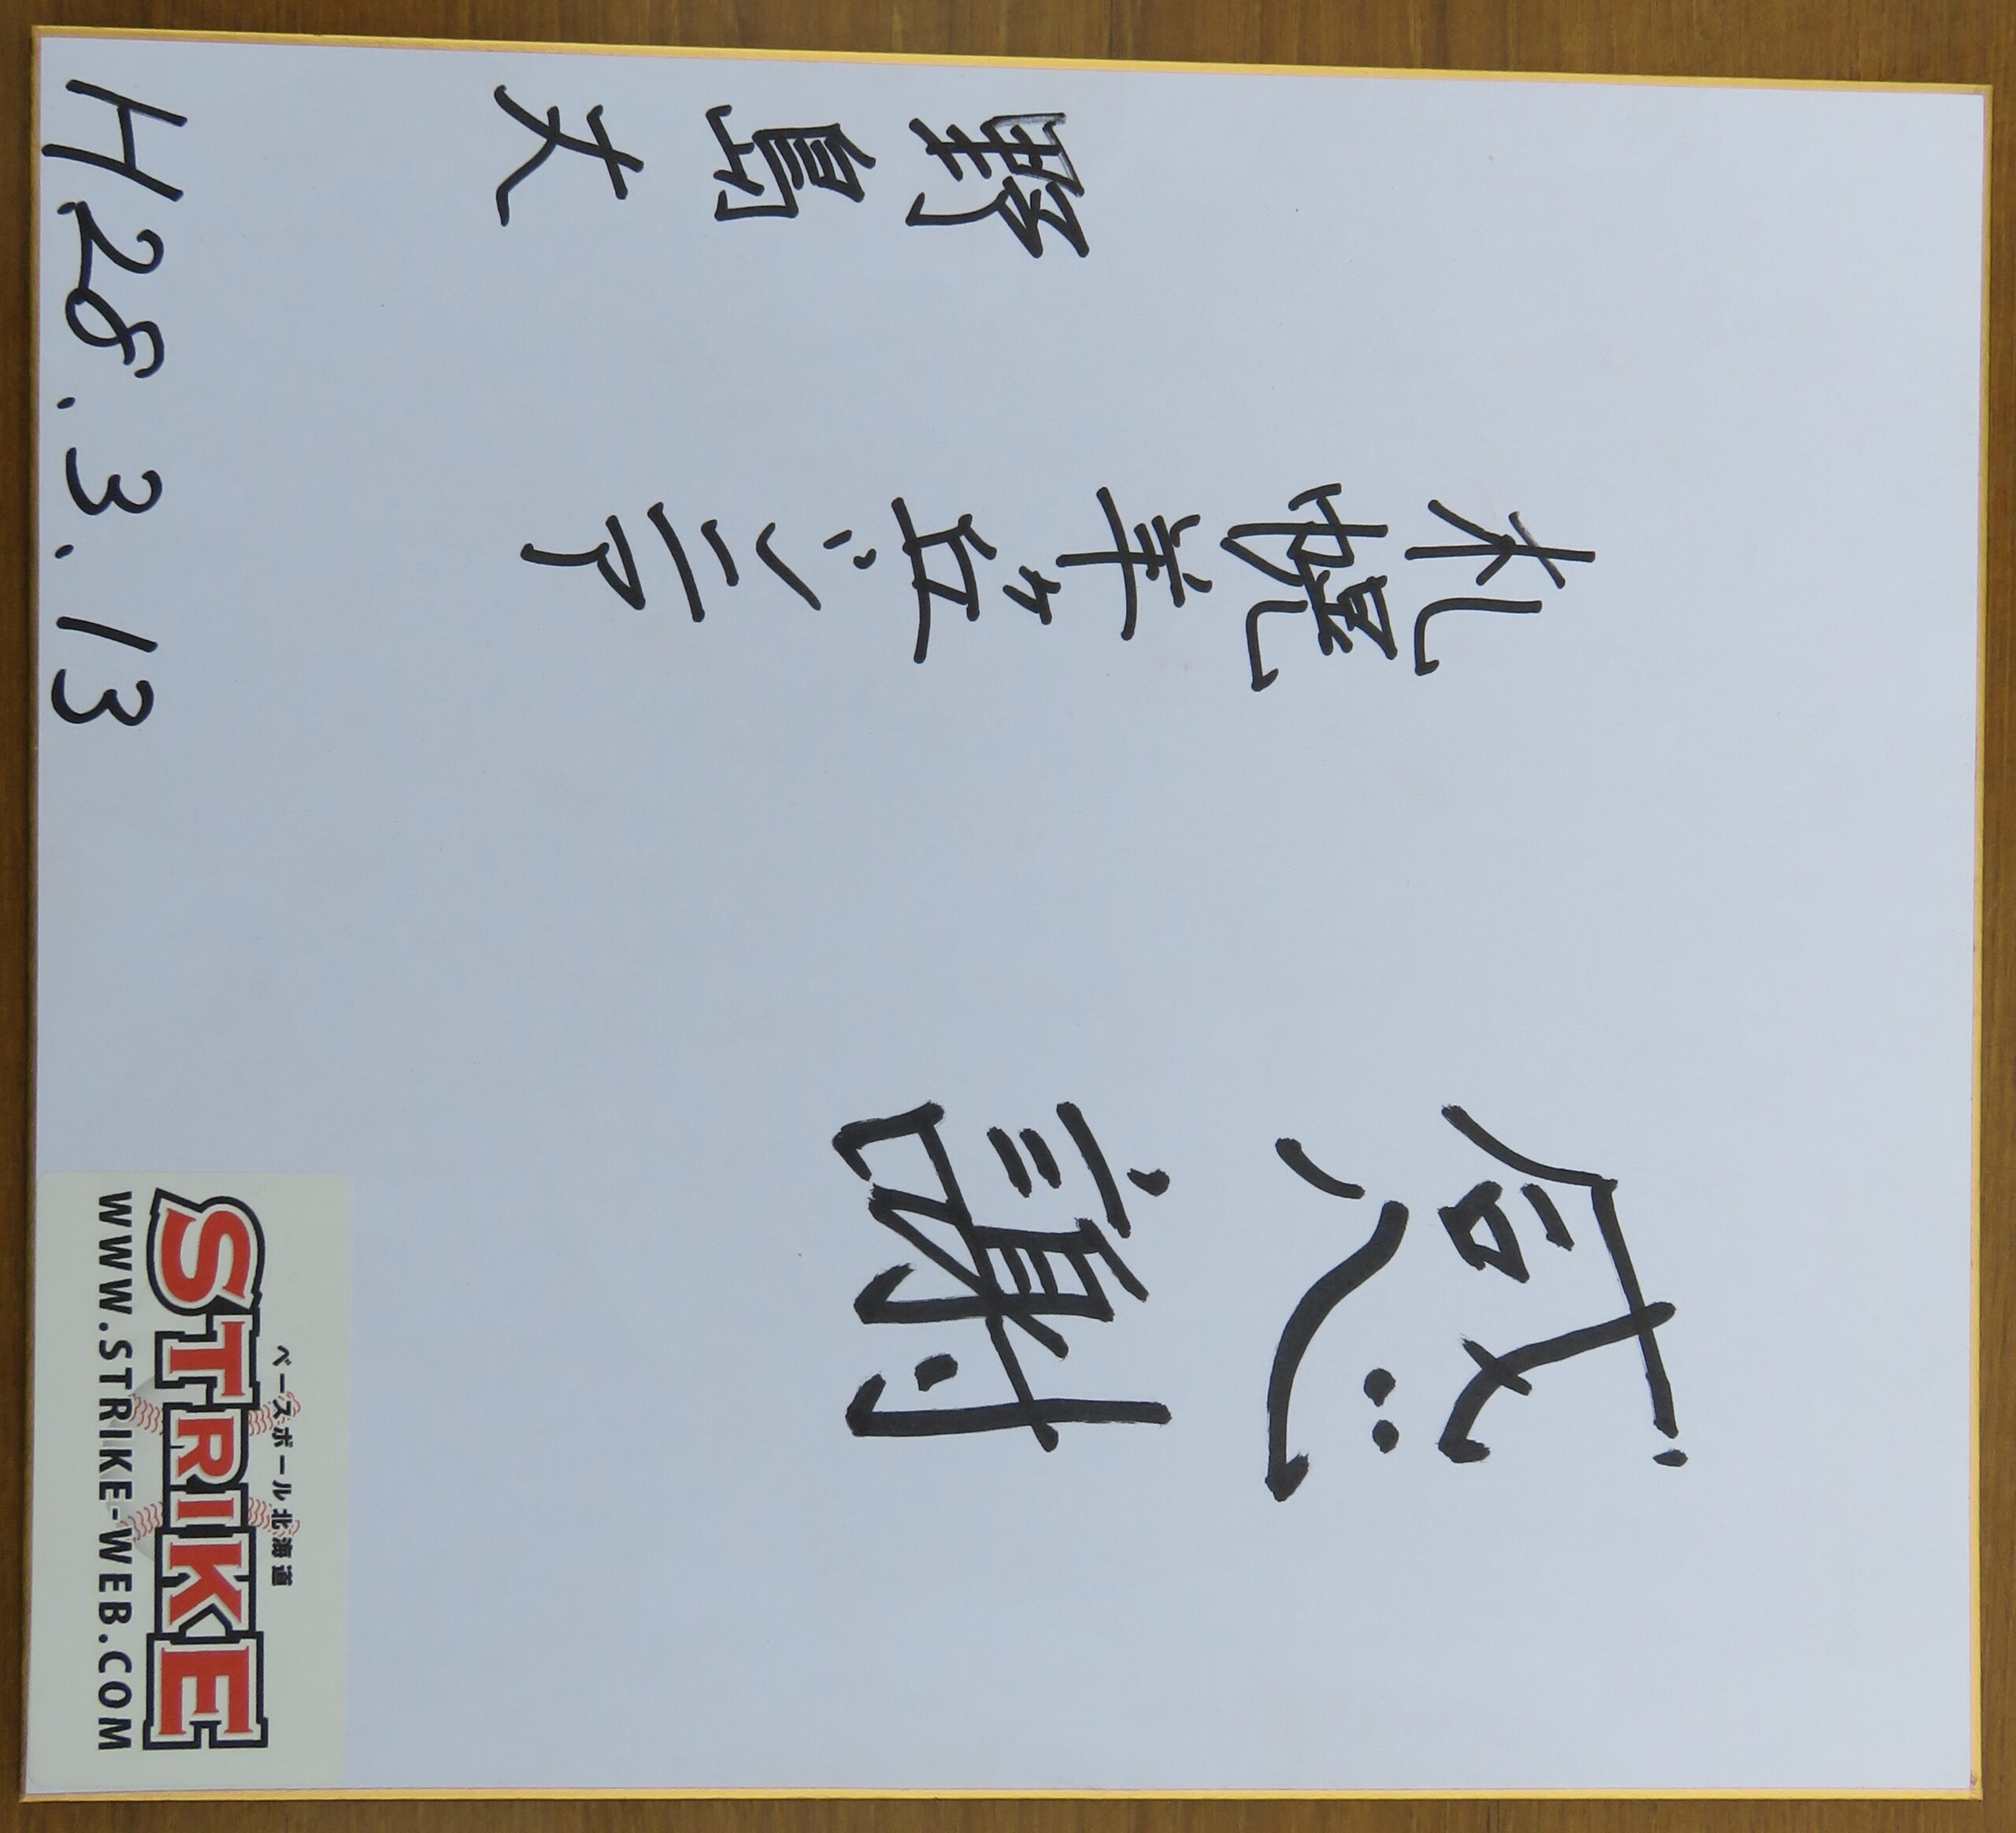 感謝
札幌羊ヶ丘シニア
野島丈
H28.3.13
ベースボール北海道
STRIKE
WWW.STRIKE-WEB.COM